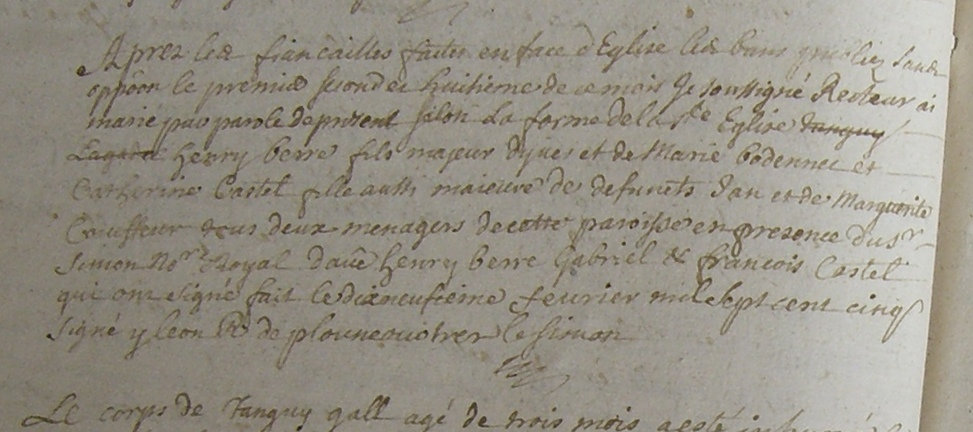 Aprez les fiancailles faites en face d'Eglise les bans publiez sans
oppõon le premier second et huitieme de ce mois Je soussigné Recteur ai
marié par parole de present selon la forme de la Ste Eglise tanguy
Lagad henry berre fils majeur d'yves et de Marie bodennec et
Catherine Castel fille aussi majeure de defuncts Jan et de Marguerite
tous deux menagers de cette paroisse en presence du sr
Simon Nore Royal d'avec henry berre Gabriel & francois Castel
qui ont signé fait le dixneufieme fevrier mil sept cent cinq
signé y leon Rr de plouneour le Simon
Le corps de Tanguy gall agé de trois mois a esté inhumé